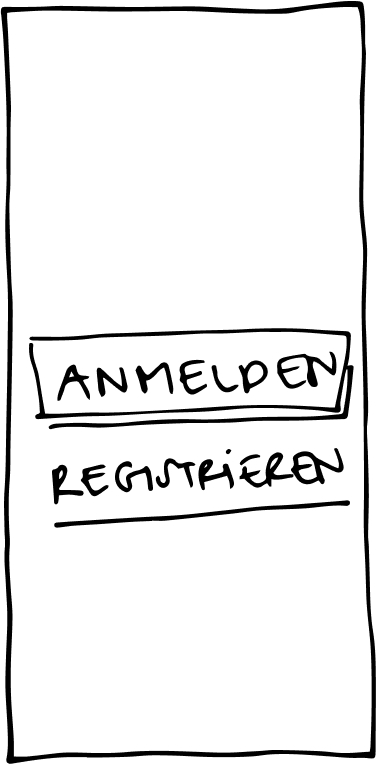 ANMELDEN
REGISTRiEREN